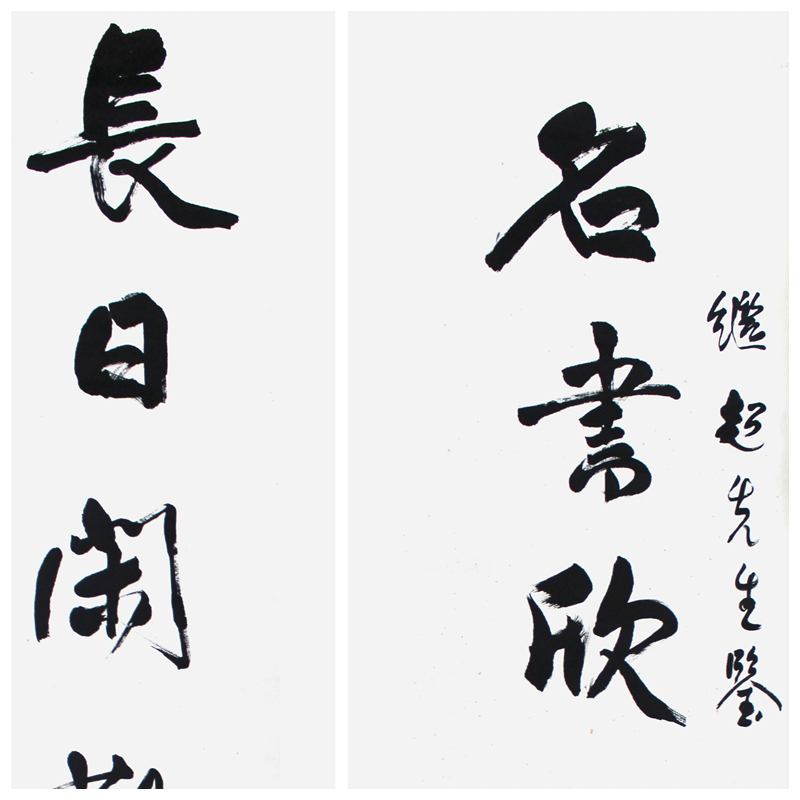 繼超先生鑒
名書欣
長日閑